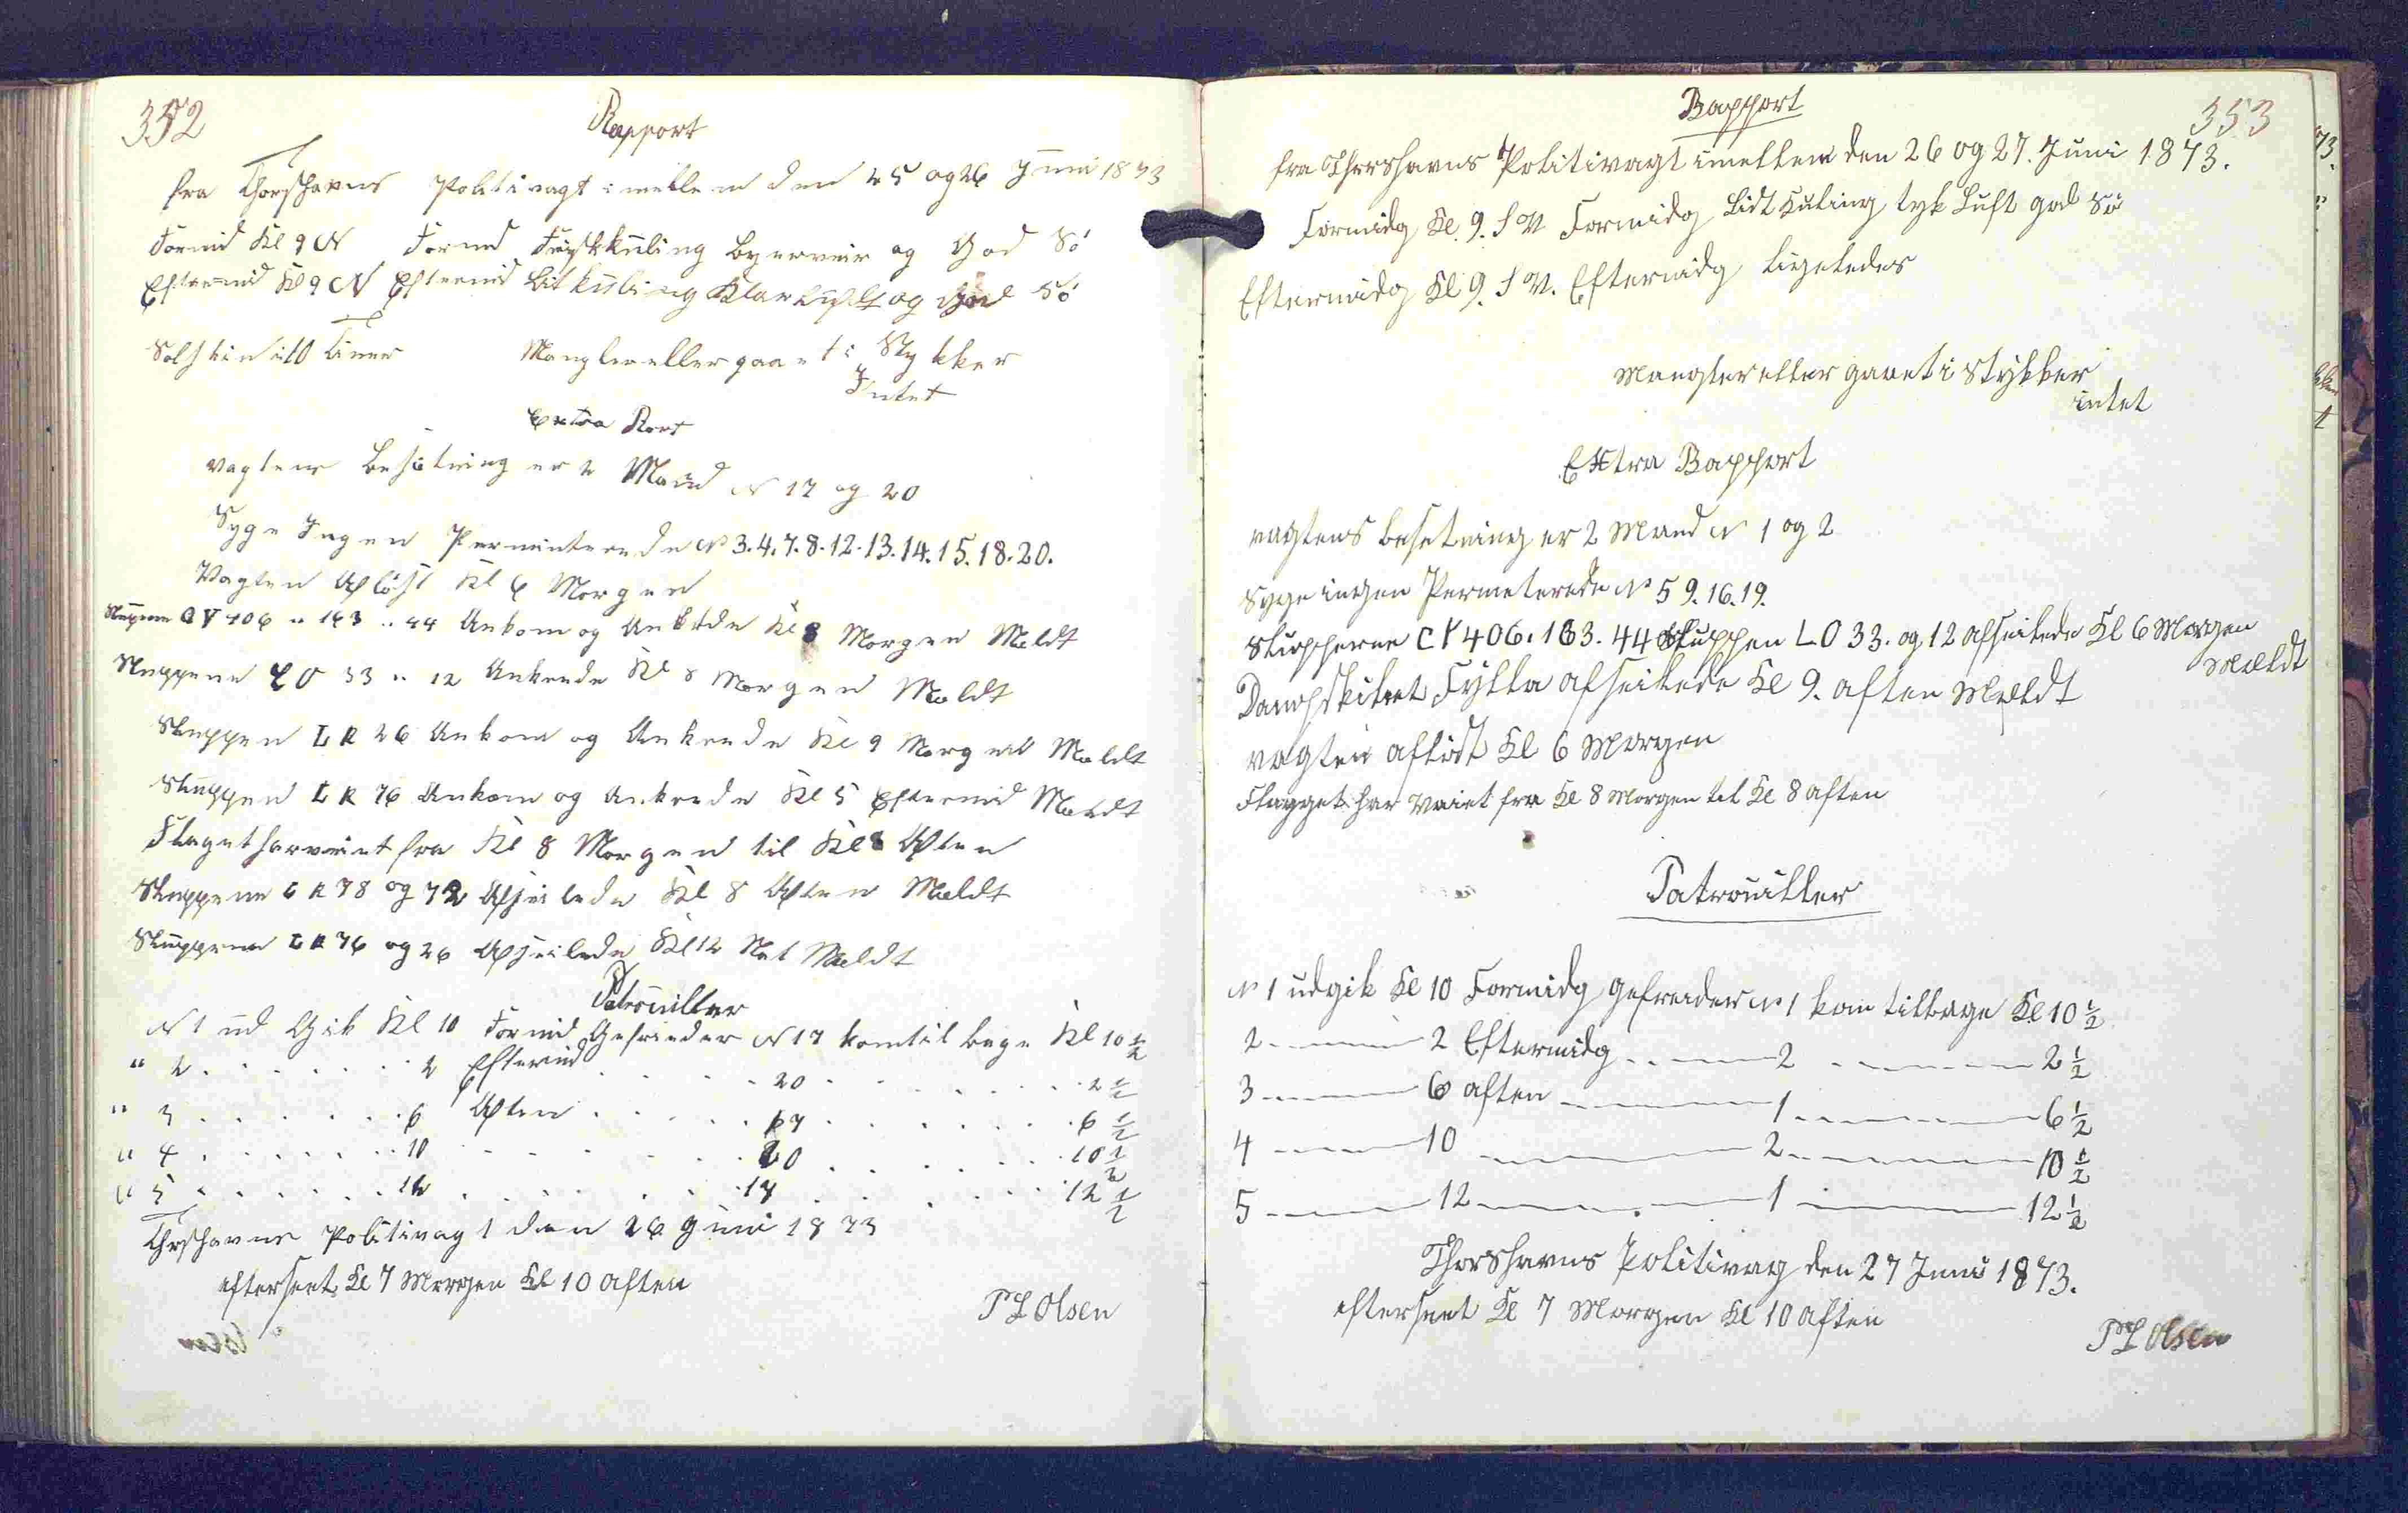 352
Rapport
fra Thorshavns Politivagt imellem den 25 og 26 Juni 1873
Formid Kl 9 N Formd Friskkuling Byerveir og God Sö
Eftermid Kl 9 N Eftermid Lit kuling Klar Luft og God Sö
Solskin i 10 Timer Mangler eller gaaet i Stykker
Intet
Extra Rort
vagtens Besætning er 2 Mand N 17 og 20
Syge Ingen Perminterede N 3.4.7.8.12.13.14.15.18.20.
Vagten Aflöst Kl 6 Morgen
Slupene CY 406 " 163 " 44 Ankom og Ankrede Kl 8 Morgen Meldt
Sluppene LO 33 " 12 Ankrede Kl 8 Morgen Meldt
Sluppen LR 26 Ankom og Ankrede Kl 9 Morgen Meldt
Sluppen LR 76 Ankom og Ankrede Kl 5 Eftermid Meldt
Flaget har veiet fra Kl 8 Morgen til Kl 8 Aften
Sluppene LR 78 og 72 Afseilede Kl 8 Aften Meldt
Sluppene LR 76 og 26 Afseilede Kl 12 Nat Meldt
Patrouiller
N 1 ud Gik Kl 10 Formid Gefreider N 17 kom til bage Kl 10 1/2
" 2 . . . . . . 2 Eftermid . . . . 20 . . . . . . 2 1/2
" 3 . . . . . . 6 Aften . . . . 17 . . . . . . 6 1/2
" 4 . . . . . . 10 . . . . . . 20 . . . . . . 10 1/2
" 5 . . . . . . 12 . . . . . . 17 . . . . . . 12 1/2
Thorshavns Politivagt den 26 Juni 1873
efterseet Kl 7 Morgen Kl 10 aften
P L Olsen
353
Rapport
fra Thorshavns Politivagt imellem den 26 og 27. Juni 1873.
Formidg Kl. 9. S V Formidg Lidt Kuling tyk Luft god Sö
Eftermidg Kl 9. S V. Eftermidg ligeledes
Mangler eller gaaet i Stykker
intet
Extra Rapport
vagtens besetning er 2 Mand N 1 og 2
Syge ingen Permeterede N 5 9. 16. 19.
Slupperne CY 406. 163. 44 Sluppen LO 33. og 12 afseilede Kl 6 Morgen
Meldt
Dampskibet Fylla afseilede Kl 9. aften Meldt
vagten aflöst Kl 6 Morgen
Flagget har vaiet fra Kl 8 Morgen til Kl 8 aften
Patrouiller
N 1 udgik Kl 10 Formidg Gefreider N 1 kom tilbage Kl 10 1/2
2 — 2 Eftermidg — 2 — 2 1/2
3 — 6 aften — 1 — 6 1/2
4 — 10 — 2 — 10 1/2
5 — 12 — 1 — 12 1/2
Thorshavns Politivag den 27 Juni 1873.
efterseet Kl 7 Morgen Kl 10 aften
P L Olsen